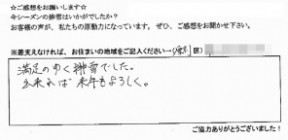 ☆ご感想をお願いします☆
今シーズンの排雪はいかがでしたか？
お客様の声が、私たちの原動力になっています。ぜひ、ご感想をお聞かせ下さい。
※差支えなければ、お住まいの地域をご記入ください→( 区)
満足のゆく排雪でした。
出来れば来年もよろしく。
ご協力ありがとうございました！